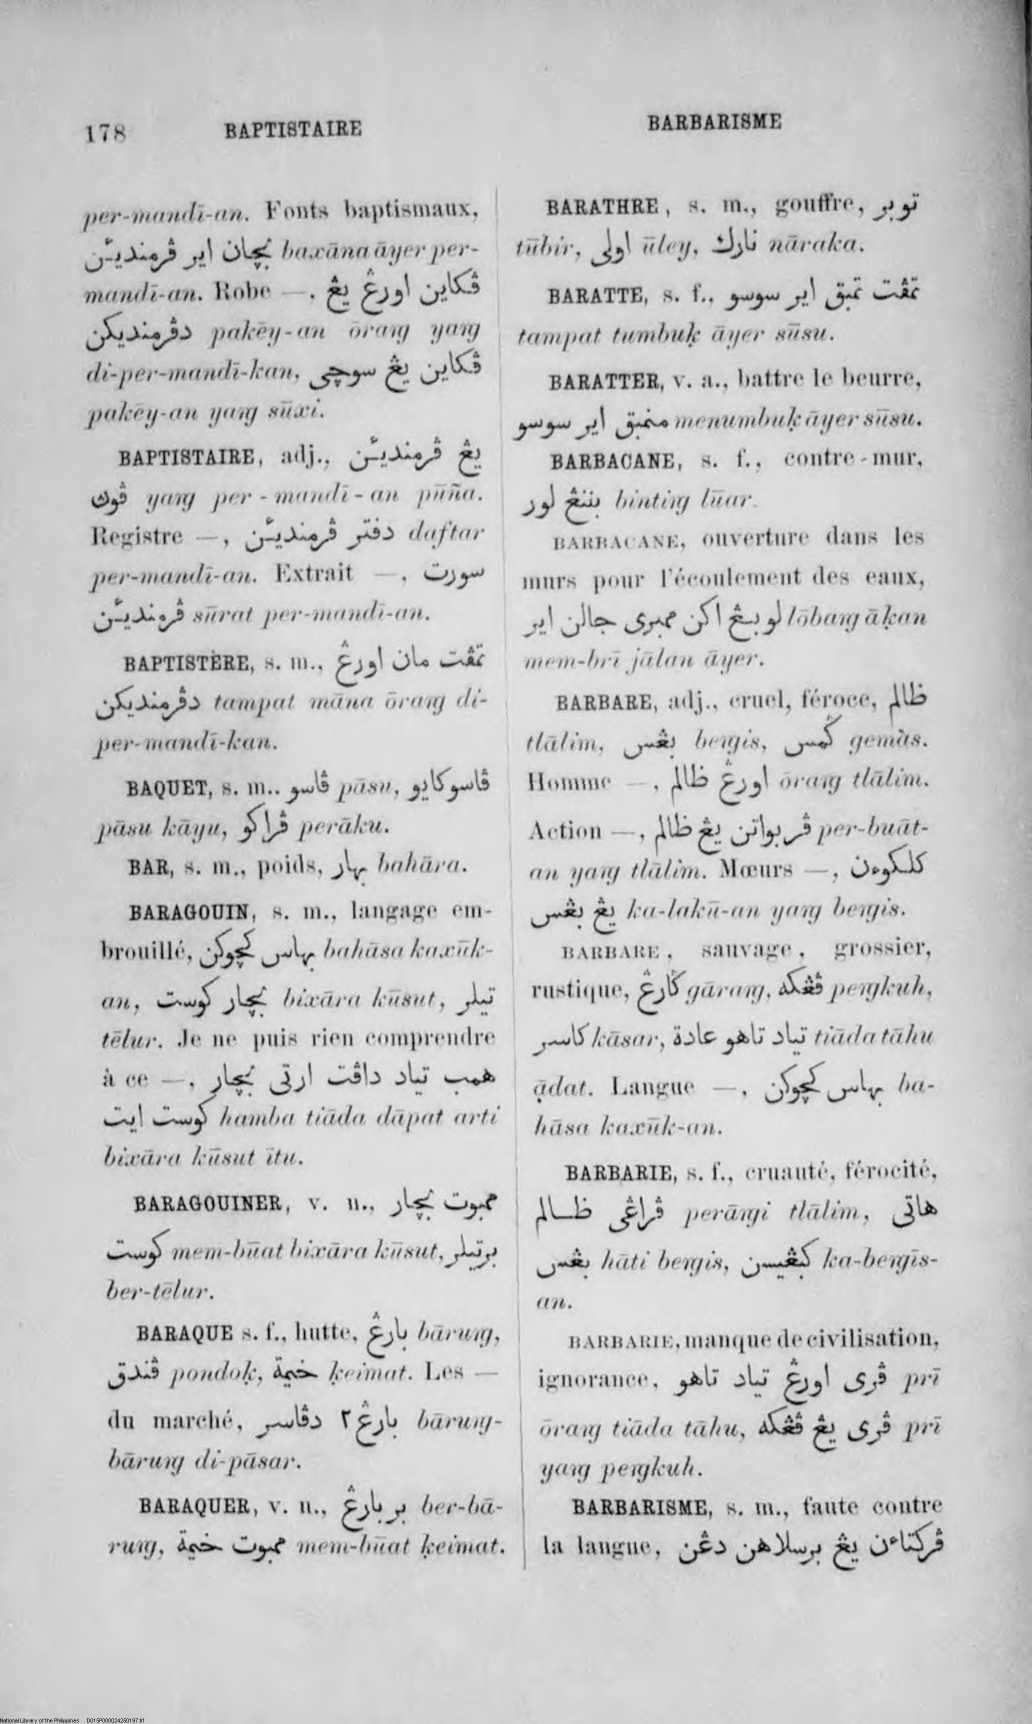 178 BAPTISTAIRE BARBARISME
per-mandī-an. Fonts baptismaux,
بچان اير ڤرمنديئن baxāna āyer per-
mandī-an. Robe —, ڤكاين اورڠ يڠ
دڤرمنديكن pakēy-an ōraŋ yaŋ
di-per-mandī-kan, ڤكاين يڠ سوچي
pakēy-an yaŋ sūxi.
BAPTISTAIRE, adj., يڠ ڤرمنديئن
ڤوڽ yaŋ per-mandī-an pūña.
Registre —, دفتر ڤرمنديئن daftar
per-mandī-an. Extrait —, سورت
ڤرمنديئن sūrat per-mandī-an.
BAPTISTÈRE, s. m., تمڤت مان اورڠ
دڤرمنديكن tampat māna ōraŋ di-
per-mandī-kan.
BAQUET, s. m.. ڤاسو pāsu, ڤاسو كايو
pāsu kāyu, ڤراكو perāku.
BAR, s. m., poids, بهار bahāra.
BARAGOUIN, s. m., langage em-
brouillé, بهاس كچوكن bahāsa kaxūk-
an, بچار كوست bixāra kūsut, تيلر
tēlur. Je ne puis rien comprendre
à ce —, همب تياد داڤت ارتي بچار
كوست ايت hamba tiāda dāpat arti
bixāra kūsut ītu.
BARAGOUINER, v. n., ممبوت بچار
كوست mem-būat bixāra kūsut, برتيلر
ber-tēlur.
BARAQUE s. f., hutte, بارڠ bāruŋ,
ڤندق pondoḳ, خيمة ḳeimat. Les —
du marché, بارڠ٢ دڤاسر bāruŋ-
bāruŋ di-pāsar.
BARAQUER, v. n., بربارڠ ber-bā-
ruŋ, ممبوت خيمة mem-būat ḳeimat.
BARATHRE, s. m., gouffre, توبر
tūbir, اولي ūley, نارك nāraka.
BARATTE, s. f., تمڤت تمبق اير سوسو
tampat tumbuḳ āyer sūsu.
BARATTER, v. a., battre le beurre,
منمبق اير سوسو menumbuḳ āyer sūsu.
BARBACANE, s. f., contre-mur,
بنتڠ لور bintiŋ lūar.
BARBACANE, ouverture dans les
murs pour l'écoulement des eaux,
لوبڠ اكن ممبري جالن اير lōbaŋ āḳan
mem-brī jālan āyer.
BARBARE, adj., cruel, féroce, ظالم
tlālim, بڠس beŋis, گمس gemàs.
Homme —, اورڠ ظالم ōraŋ tlālim.
Action —, ڤربواتن يڠ ظالم per-buāt-
an yaŋ tlālim. Mœurs —, كلكوءن
يڠ بڠس ka-lakū-an yaŋ beŋis.
BARBARE, sauvage, grossier,
rustique, گارڠ gāraŋ, ڤڠكه peŋkuh,
كاسر kāsar, تياد تاهو عادة tiāda tāhu
ạ̄dat. Langue —, بهاس كچوكن ba-
hāsa kaxūk-an.
BARBARIE, s. f., cruauté, férocité,
ڤراڠي ظالم perāŋi tlālim, هاتي
بڠس hāti beŋis, كبڠيسن ka-beŋīs-
an.
BARBARIE, manque de civilisation,
ignorance, ڤري اورڠ تياد تاهو prī
ōraŋ tiāda tāhu, ڤري يڠ ڤڠكه prī
yaŋ peŋkuh.
BARBARISME, s. m., faute contre
la langue, ڤركتاءن يڠ برسلاهن دڠن
National Library of the Philippines